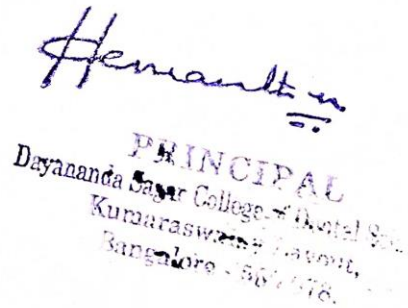 Hemanth m.
PRINCIPAL
Dayananda Sagar College of Dental
Kumaraswamy Layout,
Bangalore - 78.